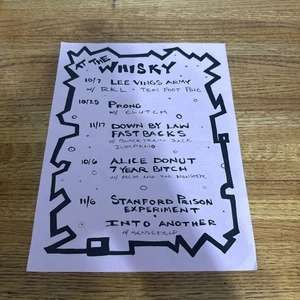 AT THE
WHISKY
10/7 LEE VINGS ARMY
W/ RKL + TEN FOOT POLE
10/25 PRONG
W/ CLUTCH
11/17 DOWN BY LAW
FASTBACKS
W/ BLACK TRAIN JACK
ZUMPANO
10/6 ALICE DONUT
7 YEAR BITCH
W/ AND THE MONKEY
11/6 STANFORD PRISON
EXPERIMENT
INTO ANOTHER
W/ SENSEFIELD